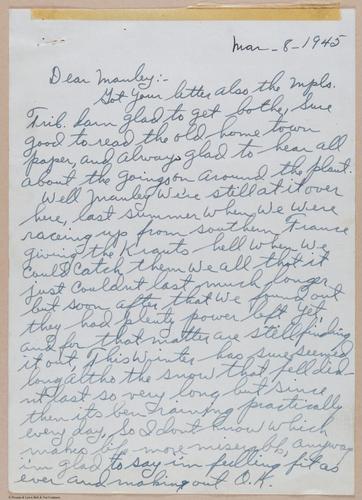 Mar-8-1945
Dear Manley:-
Got your letter also the Mpls.
Trib. darn glad to get bothe, sure
good to read the old home town
paper, and always glad to hear all
about the goings on around the plant.
Well Manley We're still at it over
here, last summer when we were
raceing up from southern France
giving the Krauts hell when we
could catch them we all that it
just couldnt last much longer
but soon after that we found out
they had plenty power left yet,
and for that matter are still finding
it out, This Winter has sure seemed
long altho the snow that fell did-
nt last so very long but since
then its ben raining practically
every day, so I dont know which
makes life more miserable, anyway
im glad to say im feelling fit as
ever and making out O.K.